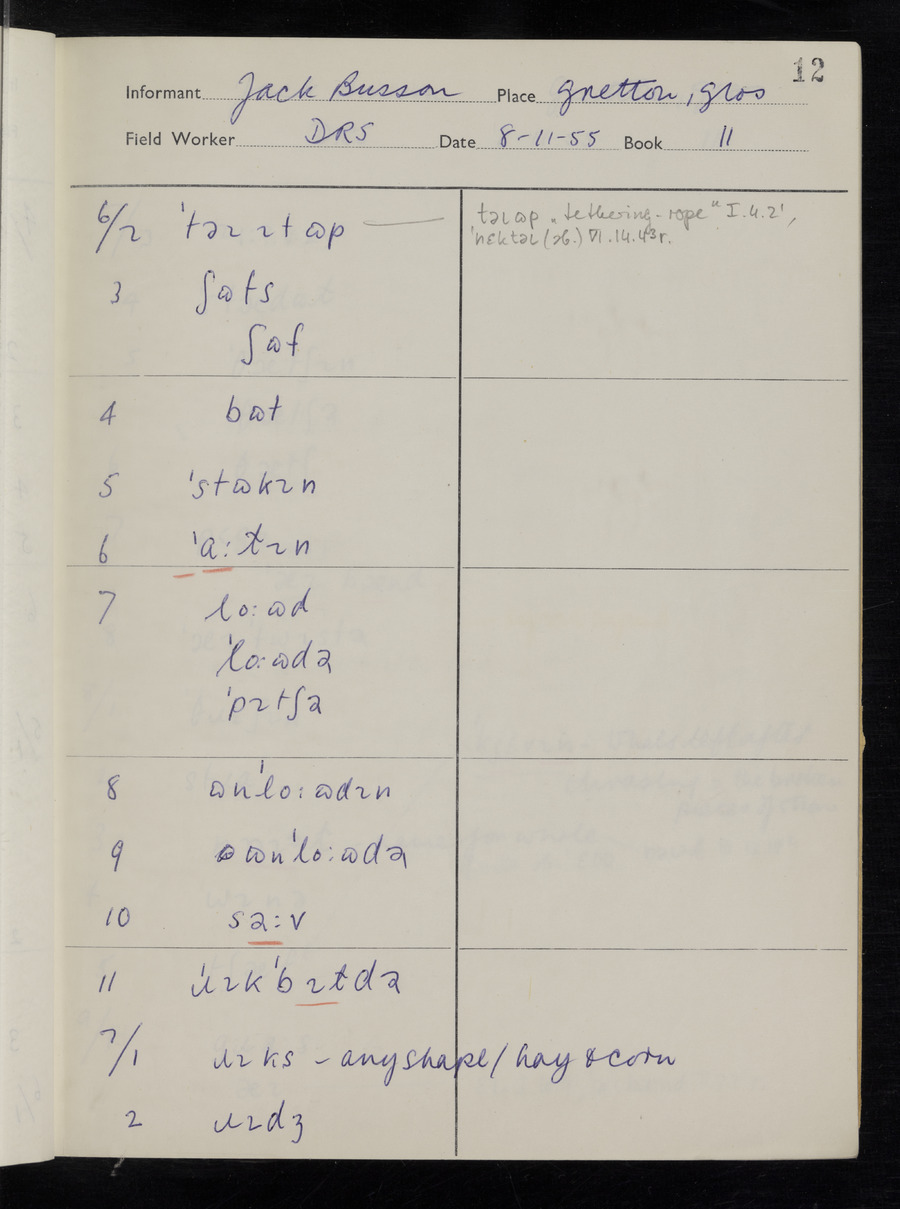 12
Informant Jack Busson Place Gretton, Glos
Field Worker DRS Date 8-11-55 Book II
6/2 ˈtəɪ ɪt ɷp
təɪ ɷp „tethering-rope“ I.4.2ˈ,
ˈnɛktəɪ (sb.) VI.14.43r.
3 ʃɷts
ʃɷf
4 bɷt
5 ˈstɷkɪn
6 ˈɑ:ɫɪn
7 lo:ɷd
ˈlo:ɷdə
ˈpɪtʃə
8 ɷnˈlo:ɷdɪn
9 ɷnˈlo:ɷdə
10 sə:v
11 ˈɹɪkˈbɪɫdə
7/1 ɹɪks – any shape/hay & corn
2 ɹɪdʒ